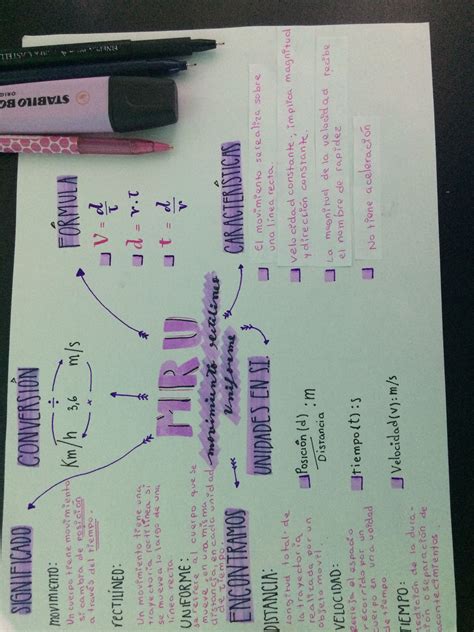 STABILO BO
ORIGI
MRU
movimiento rectilíneo
uniforme
SIGNIFICADO
MOVIMIENTO:
Un cuerpo tiene movimiento
si cambia de posición
a través del tiempo.
RECTILINEO:
Un movimiento tiene una
trayectoria rectilínea si
se mueve a lo largo de una
línea recta
UNIFORME:
CONVERSIÓN
÷
Km/h 3,6 m/s
×
FÓRMULA
V = d/t
d = v.t
t = d/v
CARACTERÍSTICAS
El movimiento se realiza sobre
una línea recta.
Velocidad constante; implica magnitud
y dirección constante.
La magnitud de la velocidad recibe
el nombre de rapidez
No tiene aceleración
UNIDADES EN SI.
Posición (d) : m
Distancia
tiempo (t) : s
Velocidad (v) : m/s
ENCONTRAMOS
DISTANCIA:
Longitud total de
la trayectoria
realizada por un
objeto móvil
VELOCIDAD:
el espacio
recorrido por un
cuerpo en una unidad
de tiempo
TIEMPO:
medición de la dura-
ción o separación de
acontecimientos